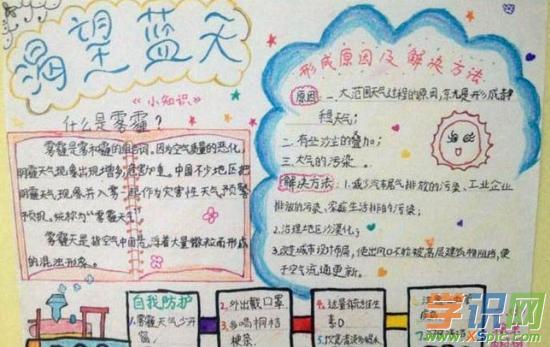 渴望蓝天
《小知识》
什么是雾霾？
雾霾是雾和霾的组合词，因为空气质量的恶化，
阴霾天气现象出现增多，危害加重。中国不少地区把
阴霾天气现象并入雾一起作为灾害性天气预警
预报。统称为“雾霾天气”
雾霾天是指空气中
浮着大量微粒而形成
的混浊形象。
形成原因及解决方法
原因：一、大范围天气过程的原因，
形成静
稳天气；
二、有些沙土的叠加；
三、大气的污染。
解决方法：1.减少汽车尾气排放的污染，工业企业
排放的污染，家庭生活排的污染；
2.治理地区沙漠化；
3.改变城市设计布局，使出风口不轻被高层建筑物阻挡，便
于空气流通更新。
自我防护
1.雾霾天气少开
窗。
2.外出戴口罩
3.多喝桐桔
梗茶
4.适量补充维生
素D
5.饮食清淡多喝水
学识网
www.xSpic.com